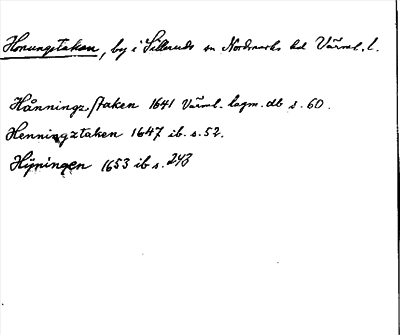 Honungstaken, by i Silleruds sn Nordmarks hd Värml. l.
Hånningz staken 1641 Värml. lagm. db s. 60.
Henningztaken 1647 ib. s. 52.
Hÿningen 1653 ib s. 243